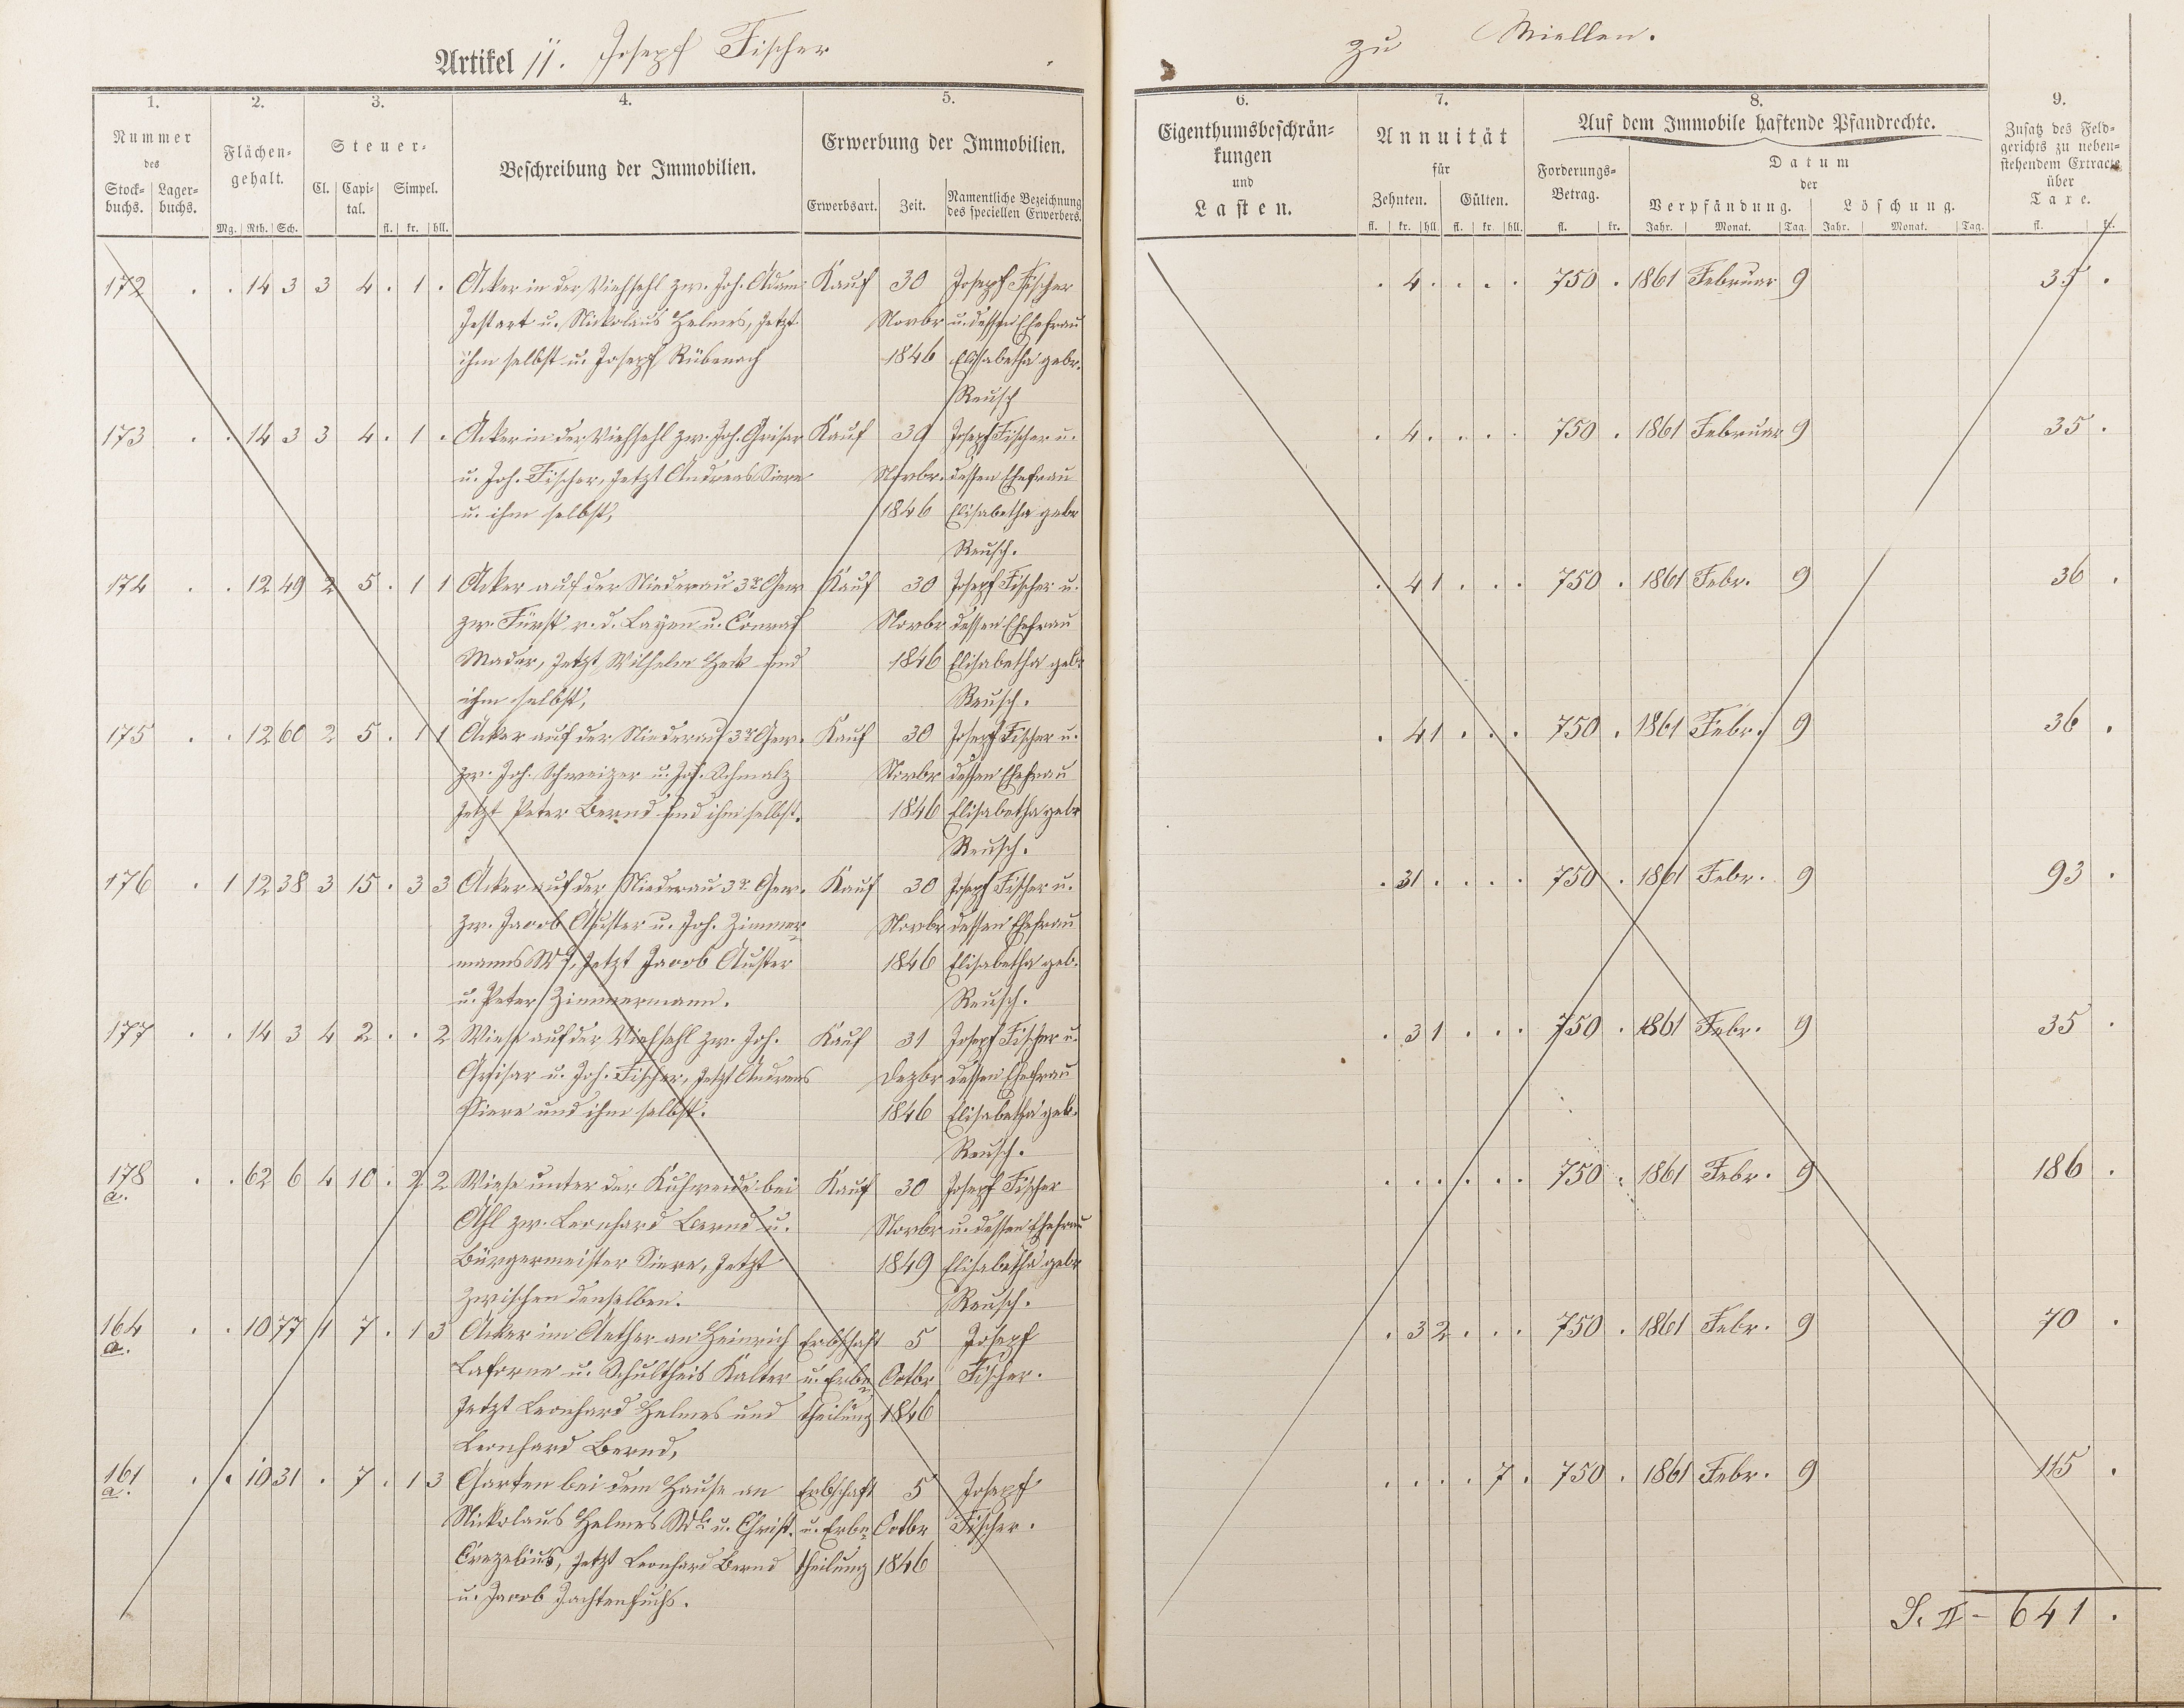 Artikel 11. Joseph Fischer
zu Miellen.
1. 2. 3. 4. 5.
Nummer des
Stock-buchs. Lager-buchs.
Flächen-gehalt.
Mg. Rth. Sch.
Steuer-
Cl. Capi-tal. Simpel.
fl. kr. hll.
Beschreibung der Immobilien.
Erwerbung der Immobilien.
Erwerbsart. Zeit. Namentliche Bezeichnung des speciellen Erwerbers.
6. 7. 8. 9.
Eigenthumsbeschrän-
kungen
und
Lasten.
Annuität
für
Zehnten. Gülten.
fl. kr. hll. fl. kr. hll.
Auf dem Immobile haftende Pfandrechte.
Forderungs-
Betrag.
fl. kr.
Datum
der
Verpfändung. Löschung.
Jahr. Monat. Tag. Jahr. Monat. Tag.
Zusatz des Feld-
gerichts zu neben-
stehendem Extracte
über
Taxe.
fl. kr.
172 . . 14 3 3 4 . 1 . Acker in der Viehsehl zw. Joh. Adam Kauf 30 Joseph Fischer . 4 . . . . 750 . 1861 Februar 9 35 .
u. Nickolaus Helmes, jetzt Novbr u. dessen Ehefrau
ihm selbst u. Joseph Rübenach 1846 Elisabetha gebr.
Reusch
173 . . 14 3 3 4 . 1 . Acker in der Viehsehl zw. Joh. Grisar Kauf 30 Joseph Fischer u. . 4 . . . . 750 . 1861 Februar 9 35 .
u. Joh. Fischer, jetzt Andreas Siere Novbr. dessen Ehefrau
u. ihm selbst, 1846 Elisabetha gebr
Reusch.
174 . . 12 49 2 5 . 1 1 Acker auf der Niederau 3r Gew Kauf 30 Joseph Fischer u. . 4 1 . . . 750 . 1861 Febr. 9 36 .
zw. Fürst v. d. Layen u. Conrad Novbr dessen Ehefrau
Mader, jetzt Wilhelm Heck und 1846 Elisabetha gebr
ihm selbst, Reusch.
175 . . 12 60 2 5 . 1 1 Acker auf der Niederau 3r Gew. Kauf 30 Joseph Fischer u. . 4 1 . . . 750 . 1861 Febr. 9 36 .
zw. Joh. Schweizer u. Joh. Schmalz Novbr dessen Ehefrau
jetzt Peter Bernd und ihm selbst. 1846 Elisabetha gebr
Reusch.
176 . 1 12 38 3 15 . 3 3 Acker auf der Niederau 3r Gew. Kauf 30 Joseph Fischer u. . 31 . . . . 750 . 1861 Febr. 9 93 .
zw. Jacob Auster u. Joh. Zimmer Novbr dessen Ehefrau
manns jetzt Jacob Auster 1846 Elisabetha geb.
u. Peter Zimmermann. Reusch.
177 . . 14 3 4 2 . . 2 Wiese auf der Viehsehl zw. Joh. Kauf 31 Joseph Fischer u. . 3 1 . . . 750 . 1861 Febr. 9 35 .
Grisar u. Joh. Fischer, jetzt Andreas Dezbr dessen Ehefrau
Siere und ihm selbst. 1846 Elisabetha geb.
Reusch.
178 a. . . 62 6 4 10 . 2 2 Wiese unter der Kuhweide bei Kauf 30 Joseph Fischer . . . . . . 750 . 1861 Febr. 9 186 .
Ahl zw. Leonhard Bernd u. Novbr u. dessen Ehefrau
Bürgermeister Siere, jetzt 1849 Elisabetha gebr
zwischen denselben. Reusch.
164 a. . . 10 77 1 7 . 1 3 Acker im Aether an Heinrich Erbschaft 5 Joseph . 3 2 . . . 750 . 1861 Febr. 9 70 .
Laforne u. Schultheis Kalter u. Erbe Octbr Fischer.
jetzt Leonhard Helmes und theilung 1846
Leonhard Bernd,
161 a. . . 10 31 . 7 . 1 3 Garten bei dem Hause an Erbschaft 5 Joseph . . . . 7 . 750 . 1861 Febr. 9 115 .
Nickolaus Helmes u. Christ. u. Erbe Octbr Fischer.
Crezelius, jetzt Leonhard Bernd theilung 1846
u. Jacob Zachtenfuchs.
S. II - 641 .